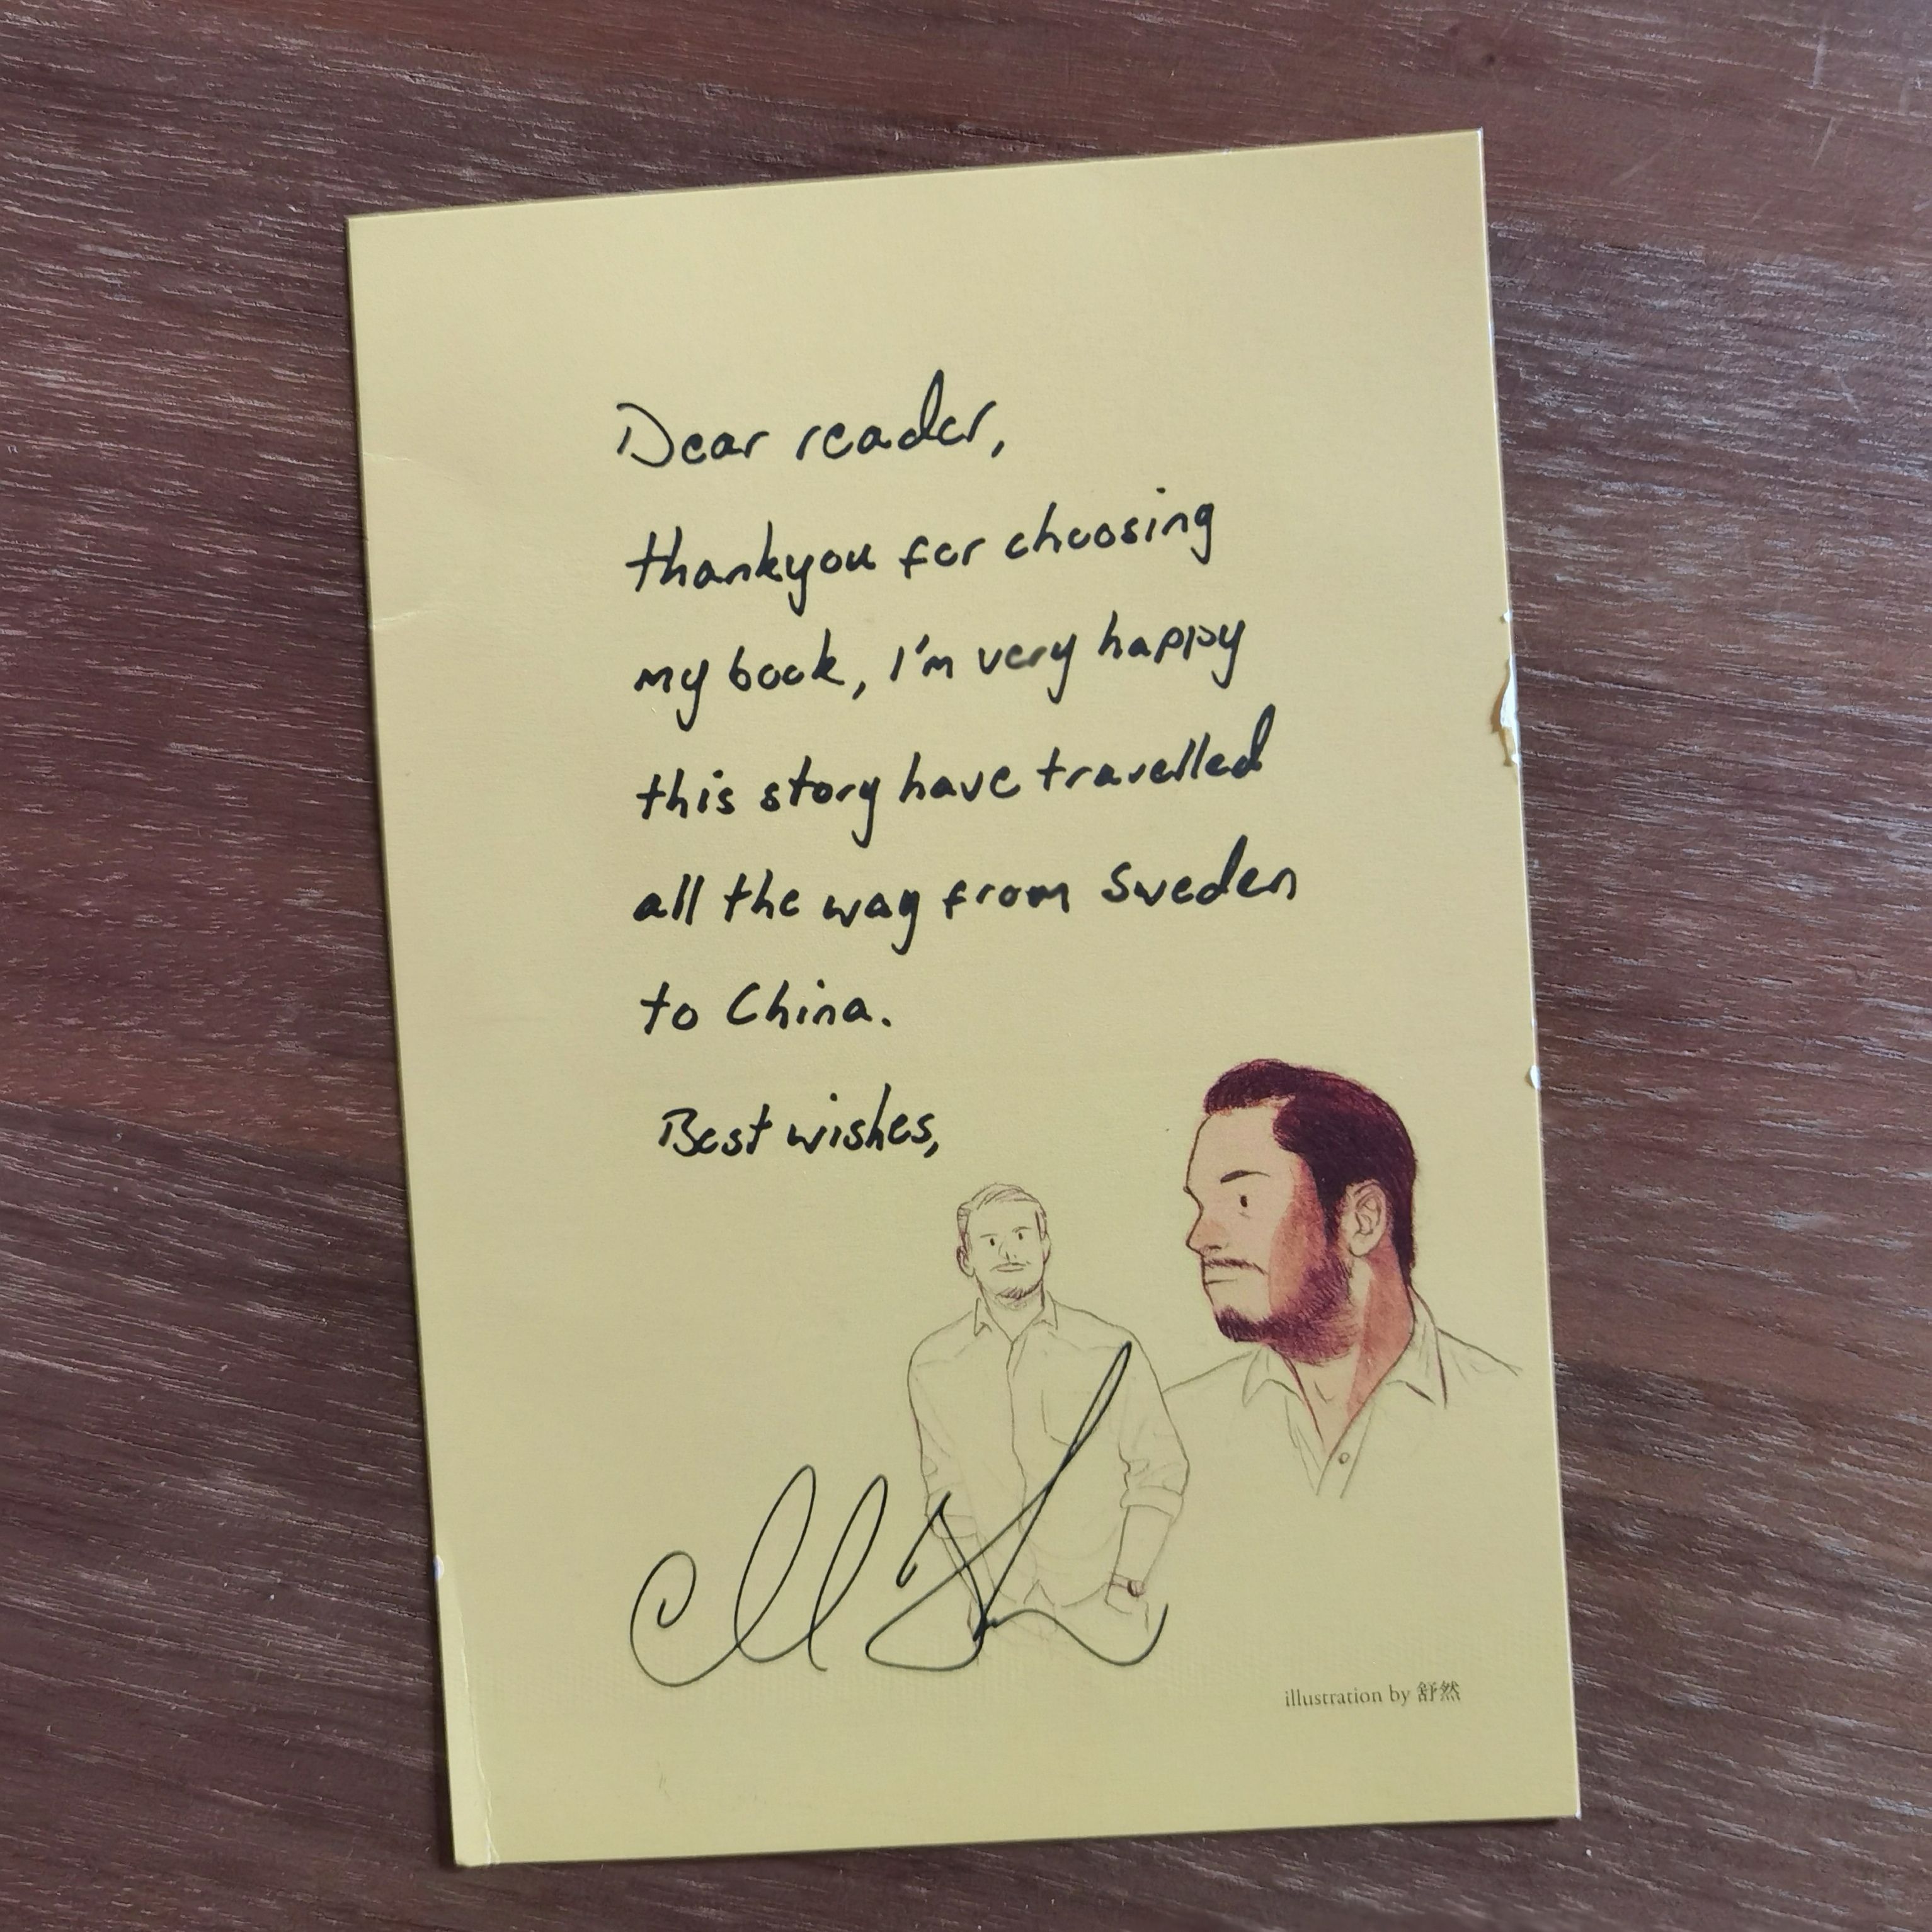 Dear reader,
thankyou for choosing
my book, I'm very happy
this story have travelled
all the way from Sweden
to China.
Best wishes,
illustration by 舒然